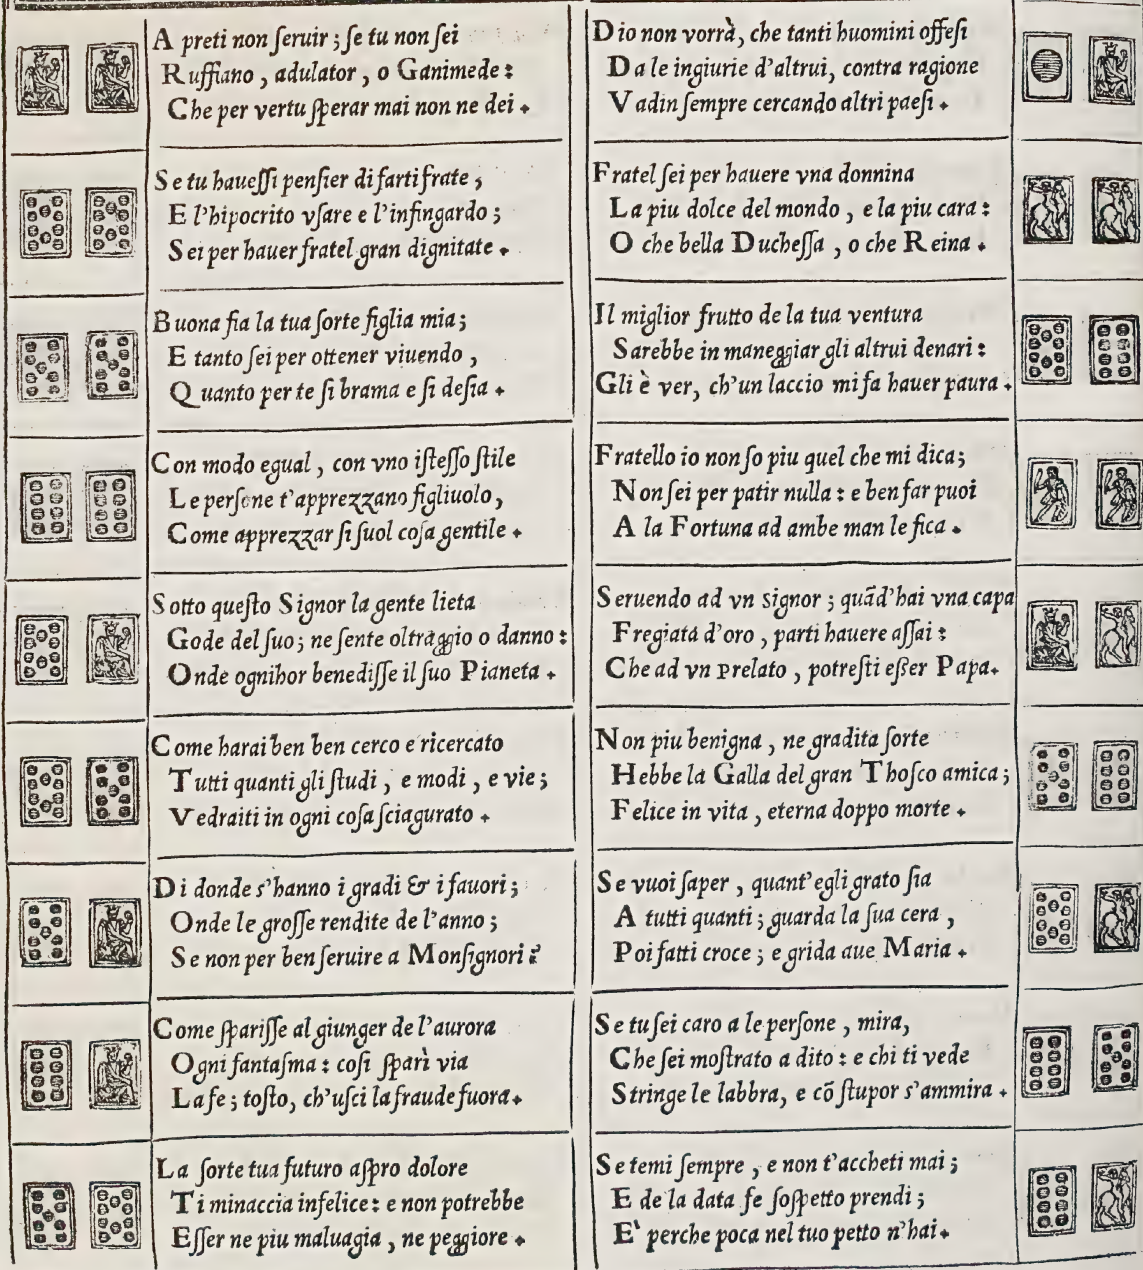 A preti non ſeruir; ſe tu non ſei
Ruffiano, adulator, o Ganimede:
Che per vertu ſperar mai non ne dei.
Se tu haueſſi penſier di farti frate,
E l'hipocrito vſare e l'infingardo;
Sei per hauer fratel gran dignitate.
Buona fia la tua ſorte figlia mia;
E tanto ſei per ottener viuendo,
Quanto per te ſi brama e ſi deſia.
Con modo egual, con vno iſteſſo ſtile
Le perſone t'apprezzano figliuolo,
Come apprezzar ſi ſuol coſa gentile.
Sotto queſto Signor la gente lieta
Gode del ſuo; ne ſente oltraggio o danno:
Onde ognihor benediſſe il ſuo Pianeta.
Come harai ben ben cerco e ricercato
Tutti quanti gli ſtudi, e modi, e vie;
Vedraiti in ogni coſa ſciagurato.
Di donde s'hanno i gradi & i fauori;
Onde le groſſe rendite de l'anno;
Se non per ben ſeruire a Monſignori?
Come ſpariſſe al giunger de l'aurora
Ogni fantaſma: coſi ſparì via
La fe; toſto, ch'uſci la fraude fuora.
La ſorte tua futuro aſpro dolore
Ti minaccia infelice: e non potrebbe
Eſſer ne piu maluagia, ne peggiore.
Dio non vorrà, che tanti huomini offeſi
Da le ingiurie d'altrui, contra ragione
Vadin ſempre cercando altri paeſi.
Fratel ſei per hauere vna donnina
La piu dolce del mondo, e la piu cara:
O che bella Ducheſſa, o che Reina.
Il miglior frutto de la tua ventura
Sarebbe in maneggiar gli altrui denari:
Gli è ver, ch'un laccio mi fa hauer paura.
Fratello io non ſo piu quel che mi dica;
Non ſei per patir nulla: e ben far puoi
A la Fortuna ad ambe man le fica.
Seruendo ad vn signor; quãd'hai vna capa
Fregiata d'oro, parti hauere aſſai:
Che ad vn Prelato, potreſti eſser Papa.
Non piu benigna, ne gradita ſorte
Hebbe la Galla del gran Thoſco amica;
Felice in vita, eterna doppo morte.
Se vuoi ſaper, quant'egli grato ſia
A tutti quanti; guarda la ſua cera,
Poi fatti croce; e grida aue Maria.
Se tu ſei caro a le perſone, mira,
Che ſei moſtrato a dito: e chi ti vede
Stringe le labbra, e cõ ſtupor s'ammira.
Se temi ſempre, e non t'accheti mai;
E de la data fe ſoſpetto prendi;
E' perche poca nel tuo petto n'hai.